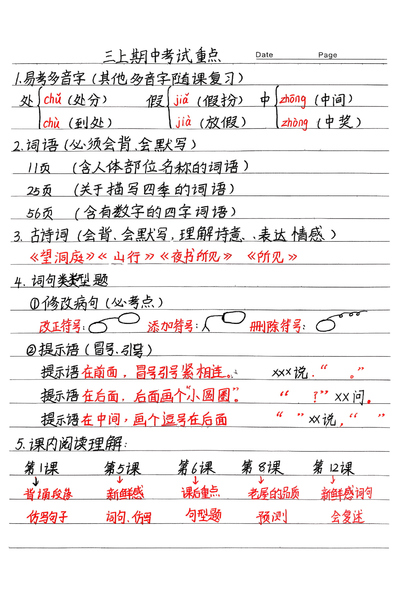 三上期中考试重点 Date Page
1.易考多音字(其他多音字随课复习)
处 chǔ(处分) 假 jiǎ(假扮) 中 zhōng(中间)
chù(到处) jià(放假) zhòng(中奖)
2.词语(必须会背、会默写)
11页 (含人体部位名称的词语)
25页 (关于描写四季的词语)
56页 (含有数字的四字词语)
3.古诗词(会背、会默写,理解诗意、表达情感)
《望洞庭》《山行》《夜书所见》《所见》
4.词句类题型题
①修改病句(必考点)
改正符号: 添加符号: 删除符号:
②提示语(冒号、引号)
提示语在前面,冒号引号紧相连。 xxx说,“ 。”
提示语在后面,后面画个“小圆圈”。 “ ?”xx问。
提示语在中间,画个逗号在后面 “ ”xx说,“ ”
5.课内阅读理解:
第1课 第5课 第6课 第8课 第12课
背诵段落 新鲜感 课后重点 老屋的品质 新鲜感词句
仿写句子 词句、仿写 句型题 预测 会复述